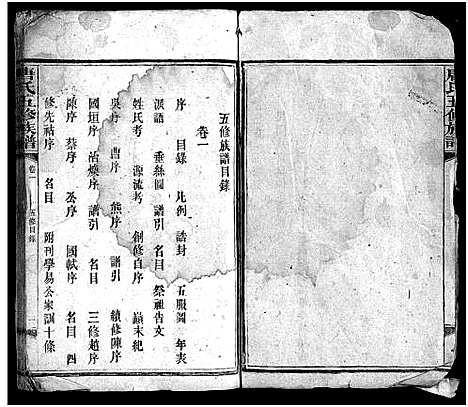 唐氏五修族譜
五修族譜目錄
卷一
序 目錄 凡例 誥封 五服圖 年表
淚譜 垂絲圖 譜引 名目 祭祖告文
姓氏考 源流考 創修自序 巔末紀
吳序 曹序 熊序 譜引 續修陳序
國垣序 治燦序 譜引 名目 三修趙序
陳序 蔡序 丞序 國軾序 名目 四
修先祜序 名目 附刊學易公家訓十條
唐氏五修族譜
卷一
五修目錄